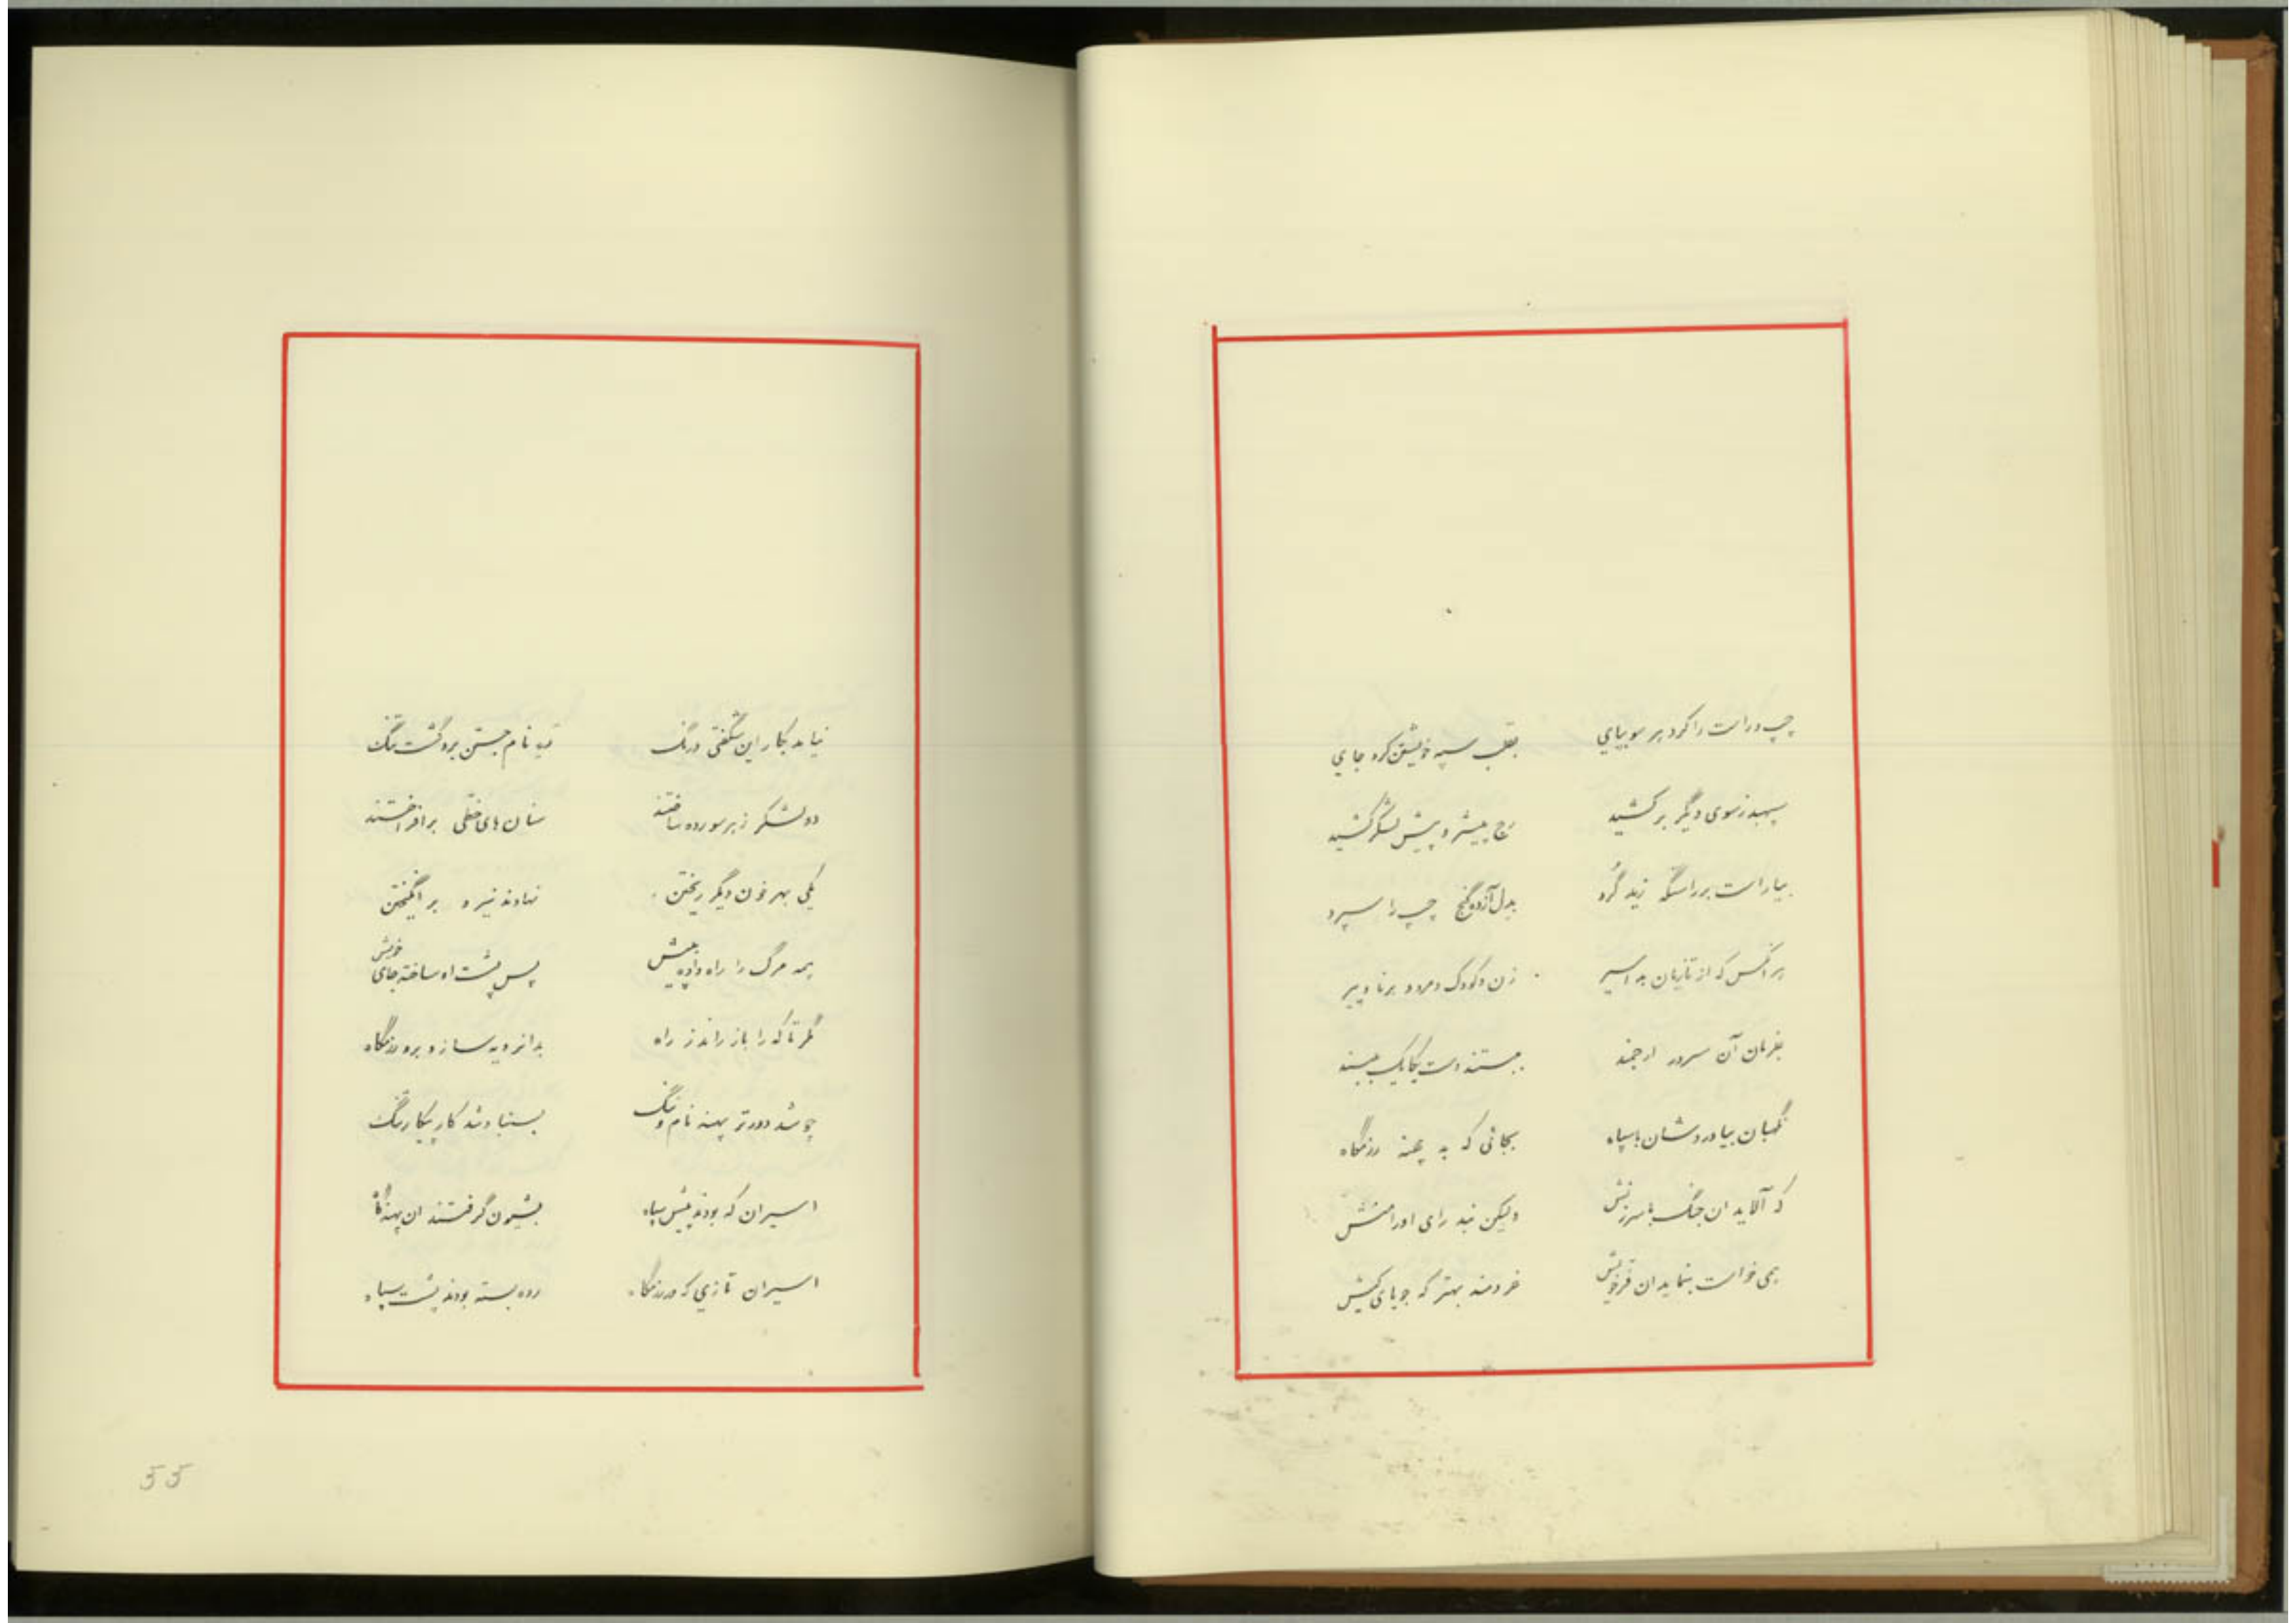 چپ و راست را کرد هر سو بپای بقلب سپه خویشتن کرد جای
سپهبد ز سوی دیگر برکشید رخ پیشرو پیش لشکر کشید
بیاراست بر راستگه زید گرد بدل آزده گنج چپ را سپرد
هر آنکس که از تازیان بد اسیر زن و کودک و مرد و برنا و پیر
بفرمان آن سرور ارجمند ببستند دست یکایک ببند
نگهبان بیاوردشان با سپاه بجائی که بد پهنه رزمگاه
که آلاید ان جنگ با سرزنش ولیکن نبد رای او را منش
همی خواست بنماید ان فر خویش خردمند بهتر که جویای کیش
نیامد بکار این شگفتی درنگ که نام جستن برو گشت تنگ
دو لشکر ز هر سو رده ساختند سنان های خطی برافراختند
یکی بهر خون دیگر ریختن نهادند نیرو برانگیختن
همه مرگ را راه داده پیش پس پشت او ساخته جای خویش
مگر تا که را باز راند ز راه بدانرویه سازد برو رزمگاه
چو شد دورتر پهنه نام و ننگ بسنباد شد کار پیکار تنگ
اسیران که بودند پیش سپاه بشیون گرفتند ان پهنه گاه
اسیران تازی که در رزمگاه رده بسته بودند پشت سپاه
55